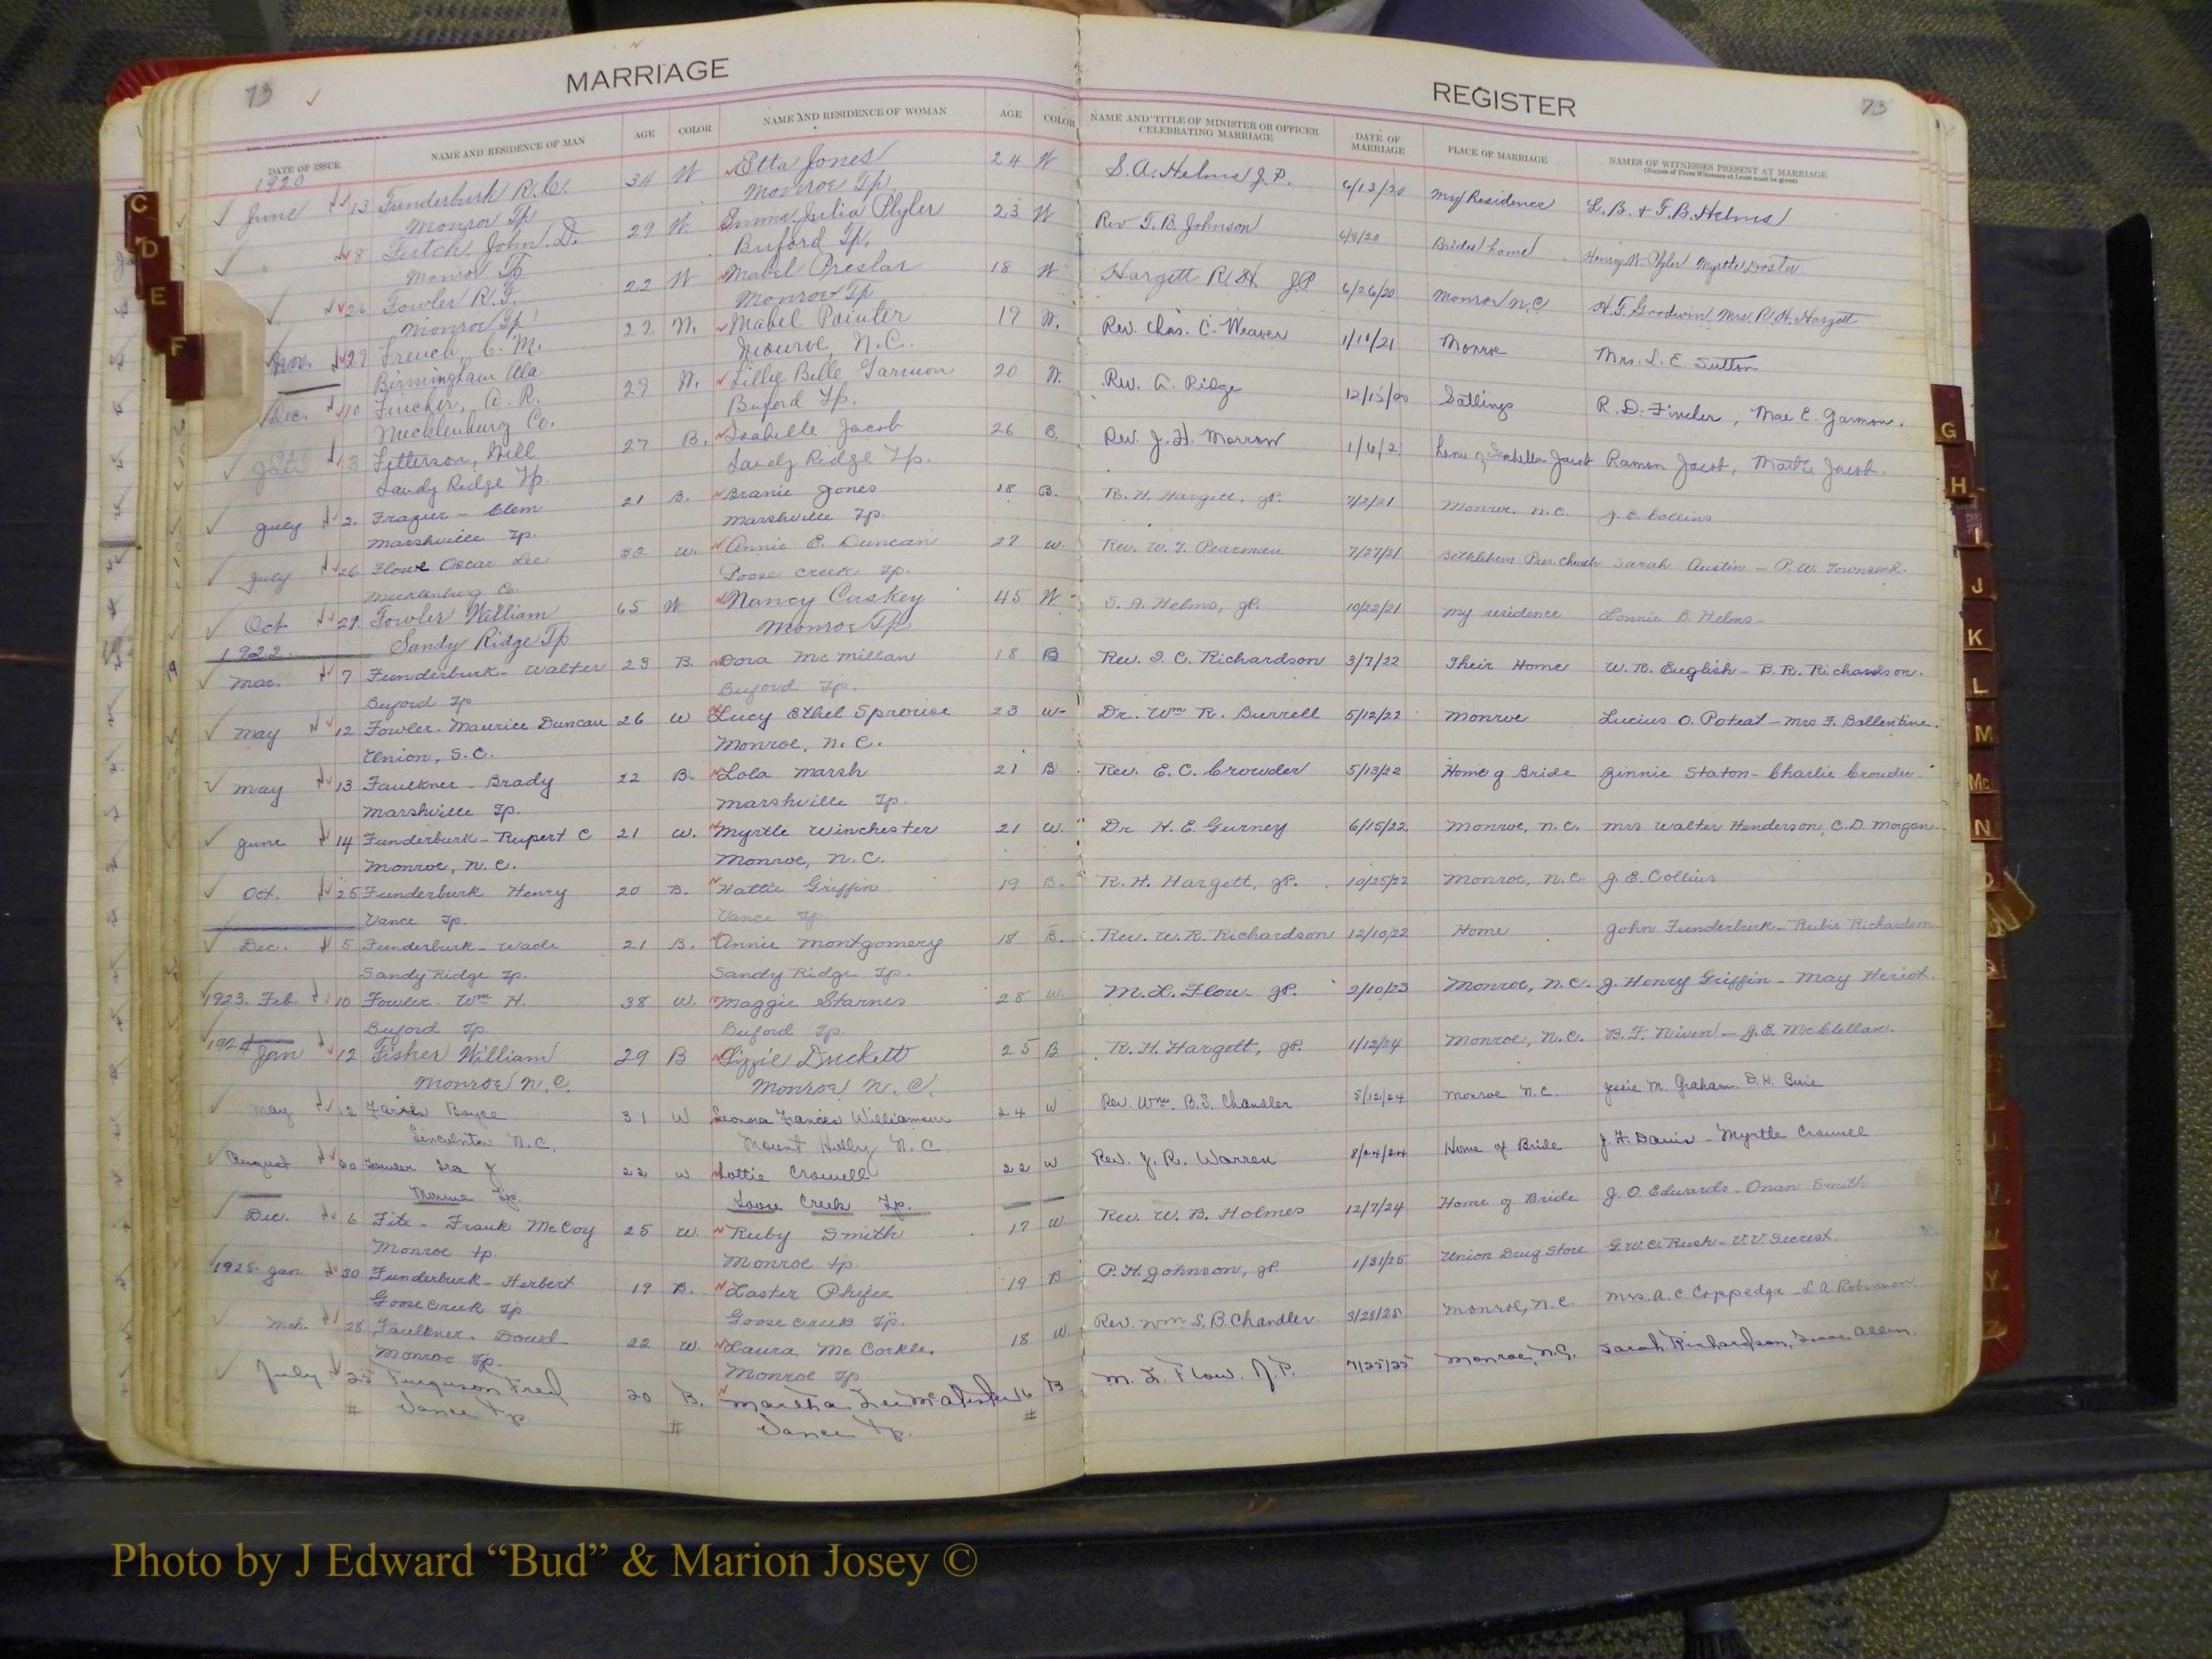 73 MARRIAGE
DATE OF ISSUE NAME AND RESIDENCE OF MAN AGE COLOR NAME AND RESIDENCE OF WOMAN AGE COLOR
1920
June 13 Funderburk R.C. 34 W Etta Jones 24 W
Monroe Tp Monroe Tp
8 Futch, John D. 29 W. Emma Julia Plyler 23 W
Monroe Tp Buford Tp.
26 Fowler R.F. 22 W Mabel Preslar 18 W
Monroe Tp Monroe Tp
Nov. 27 French, C. M. 22 W. Mabel Pointer 19 W.
Birmingham Ala Monroe, N.C.
Dec. 10 Fincher, A. R. 29 W. Lillie Belle Garmon 20 W.
Mecklenburg Co. Buford Tp.
Jan 3 Fetterson, Will 27 B. Isabelle Jacob 26 B.
Sandy Ridge Tp. Sandy Ridge Tp.
July 2. Frazier - Clem 21 B. Branie Jones 18 B.
Marshville Tp. Marshville Tp.
July 26 Flowe Oscar Lee 32 W. Annie E. Duncan 27 W.
Mecklenburg Co. Goose Creek Tp.
Oct 21. Fowler William 65 W Nancy Caskey 45 W
1922 Sandy Ridge Tp Monroe Tp
Mar. 7 Funderburk - Walter 23 B. Dora McMillan 18 B
Buford Tp Buford Tp.
May 12 Fowler - Maurice Duncan 26 W Lucy Ethel Sprouse 23 W-
Union, S.C. Monroe, N.C.
May 13 Faulkner - Brady 22 B. Lola Marsh 21 B
Marshville Tp. Marshville Tp.
June 14 Funderburk - Rupert C 21 W. Myrtle Winchester 21 W.
Monroe, N.C. Monroe, N.C.
Oct. 25 Funderburk Henry 20 B. Hattie Griffin 19 B.
Vance Tp. Vance Tp.
Dec. 5 Funderburk - Wade 21 B. Annie Montgomery 18 B.
Sandy Ridge Tp. Sandy Ridge Tp.
1923. Feb 10 Fowler. Wm H. 38 W. Maggie Starnes 28 W.
Buford Tp. Buford Tp.
1924 Jan 12 Fisher William 29 B Lizzie Duckett 25 B
Monroe N.C. Monroe N.C.
May 12 Boyce 31 W Leonora Frances Williamson 24 W
Lincolnton N.C. Mount Holly N.C
August 20 Fowler Ira J 22 W Lottie Crowell 22 W
Monroe Tp. Goose Creek Tp.
Dec. 6 Fite - Frank McCoy 25 W. Ruby Smith 17 W.
Monroe tp. Monroe tp.
1925. Jan. 30 Funderburk - Herbert 19 B. Laster Phifer 19 B
Goose Creek Tp. Goose Creek Tp.
Mch. 28 Faulkner. Dowd 22 W. Laura McCorkle. 18 W.
Monroe Tp. Monroe Tp
July 25 Ferguson Fred 20 B. Martha Lee 16 B
# Vance tp # Vance tp. #
REGISTER 73
NAME AND TITLE OF MINISTER OR OFFICER CELEBRATING MARRIAGE DATE OF MARRIAGE PLACE OF MARRIAGE NAMES OF WITNESSES PRESENT AT MARRIAGE
(Names of Three Witnesses at Least must be given)
S.A. Helms J.P. 6/13/20 My Residence L.B. + F.B. Helms
Rev T.B. Johnson 6/8/20 Brides home Henry W Plyler Myrtle Doster
Hargett R.H. J.P. 6/26/20 Monroe N.C H.F. Goodwin, Mrs. R.H. Hargett
Rev. Chas. C. Weaver 1/11/21 Monroe Mrs. L. E. Sutton
Rev. A. Ridge 12/15/20 Stallings R. D. Fincher, Mae E. Garmon.
Rev. J. H. Morrow 1/6/21 home of Isabella Jacob Ramon Jacob, Jacob.
R. H. Hargett, JP. 7/2/21 Monroe N.C. J.E. Collins
Rev. W.T. Pearman 7/27/21 Bethlehem Pres. Church Sarah Austin - P.W. Townsend.
S. A. Helms, JP. 10/22/21 My residence Lonnie B. Helms-
Rev. I. C. Richardson 3/7/22 Their Home W. R. English - B. R. Richardson.
Dr. Wm R. Burrell 5/12/22 Monroe Lucius O. Poteat - Mrs F. Ballentine.
Rev. E. C. Crowder 5/13/22 Home of Bride Jinnie Staton - Charlie Crowder
Dr H. E. Gurney 6/15/22 Monroe, N.C. Mrs Walter Henderson, C.D. Morgan
R. H. Hargett, JP. 10/25/22 Monroe, N.C. J. E. Collins
Rev. W. R. Richardson 12/10/22 Home John Funderburk - Rubie Richardson
M. L. Flow JP. 2/10/23 Monroe, N.C. J. Henry Griffin - May Heriot.
R. H. Hargett, JP. 1/12/24 Monroe, N.C. B. F. Niven - J.E. McClellan.
Rev. Wm. B.S. Chandler 5/12/24 Monroe N.C. Jessie M. Graham. D.H. Buie
Rev. J. R. Warren 8/24/24 Home of Bride J.F. Davis - Myrtle Crowell
Rev. W. B. Holmes 12/7/24 Home of Bride J.O. Edwards - Onan Smith
P. H. Johnson, JP 1/31/25 Union Drug Store G.W.C. Rush - V.V. Secrest.
Rev. Wm. S. B. Chandler 3/28/25 Monroe, N.C. Mrs. A.C Coppedge - L A Robinson.
M. L. Flow. J.P. 7/25/25 Monroe, N.C. Sarah Richardson, Isaac Allen.
C
D
E
F
G
H
I
J
K
L
M
Mc
N
Photo by J Edward “Bud” & Marion Josey ©